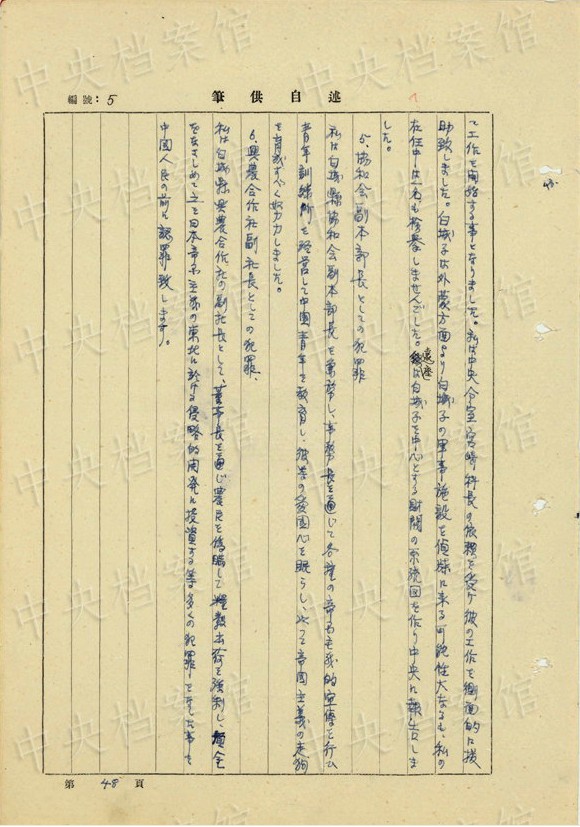 編號: 5
筆供自述
て工作を開始する事となりました。私は中央分室宮崎科長の依頼を受け彼の工作を側面的に援
助致しました。白城子は外蒙方面より白城子の軍事施設を偵察に来る可能性大なるも、私の
在任中は一名も検挙しませんでした。遠藤は白城子を中心とする財閥の系統図を作り中央に報告しま
した。
5. 協和会副本部長としての犯罪
私は白城縣協和会副本部長を兼務し、事務長を通じて各種の帝国主義的宣傳を行ひ
青年訓練所を経営して中国青年を教育し、彼等の愛国心を眠らし、以て帝國主義の走狗
を育成すべく努力しました。
6. 興農合作社副社長としての犯罪、
私は白城縣興農合作社の副社長として、董事長を通じ農民を偽瞞して糧穀出荷を強制し、資金
をなさしめて之を日本帝国主義の東北に於ける侵略的開発に投資する等多くの犯罪をなした事を
中國人民の前に認罪致します。
第 48 頁
中央档案馆